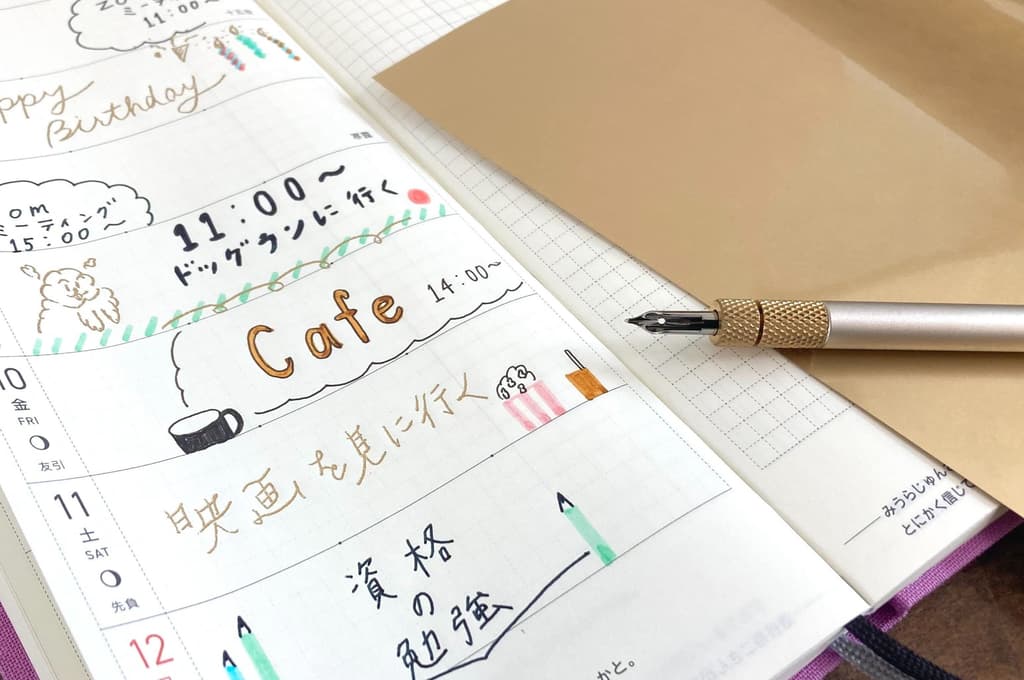 ミーティング
11:00〜
ppy
Birthday
om
ミーティング
15:00〜
11:00〜
ドッグランに行く
Cafe
14:00〜
10
金
FRI
友引
映画を見に行く
11
土
SAT
先負
資格
の
勉強
12
みうらじゅん
とにかく信じて
かと。